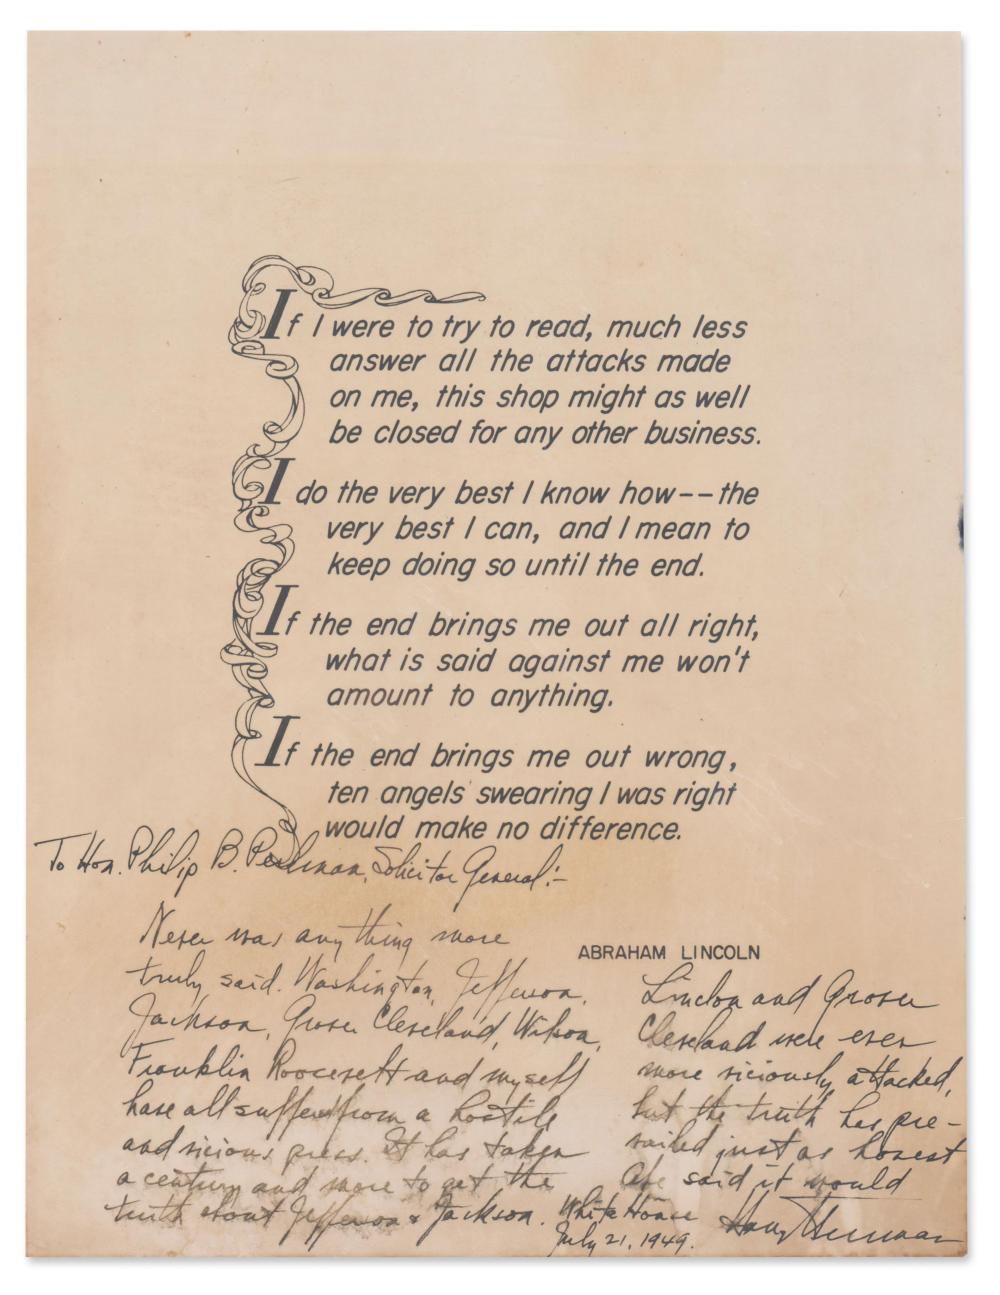 If I were to try to read, much less
answer all the attacks made
on me, this shop might as well
be closed for any other business.
I do the very best I know how--the
very best I can, and I mean to
keep doing so until the end.
If the end brings me out all right,
what is said against me won't
amount to anything.
If the end brings me out wrong,
ten angels swearing I was right
would make no difference.
To Hon. Philip B. Perlman, Solicitor General:-
ABRAHAM LINCOLN
Never was any thing more
truly said. Washington, Jefferson,
Jackson, Grover Cleveland, Wilson,
Franklin Roosevelt and myself
have all suffered from a hostile
and vicious press. It has taken
a century and more to get the
truth about Jefferson & Jackson.
Lincoln and Grover
Cleveland were even
more viciously attacked,
but the truth has pre-
vailed just as honest
Abe said it would
White House
July 21, 1949.
Harry Truman